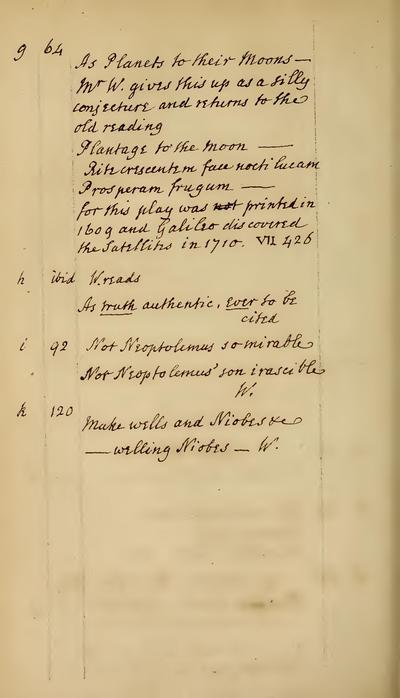 g 64 As Planets to their Moons —
Mr W. gives this up as a silly
conjecture and returns to the
old reading
Plantage to the moon —
Rite crescentem face noctilucam
Prosperam frugum —
for this play was not printed in
1609 and Galileo discovered
the Satellites in 1710. VII 426
h ibid W. reads
As truth authentic, Ever to be
cited
i 92 Not Neoptolemus so mirable
Not Neoptolemus' son irascible
W.
k 120 Make wells and Niobes &c
— welling Niobes — W.